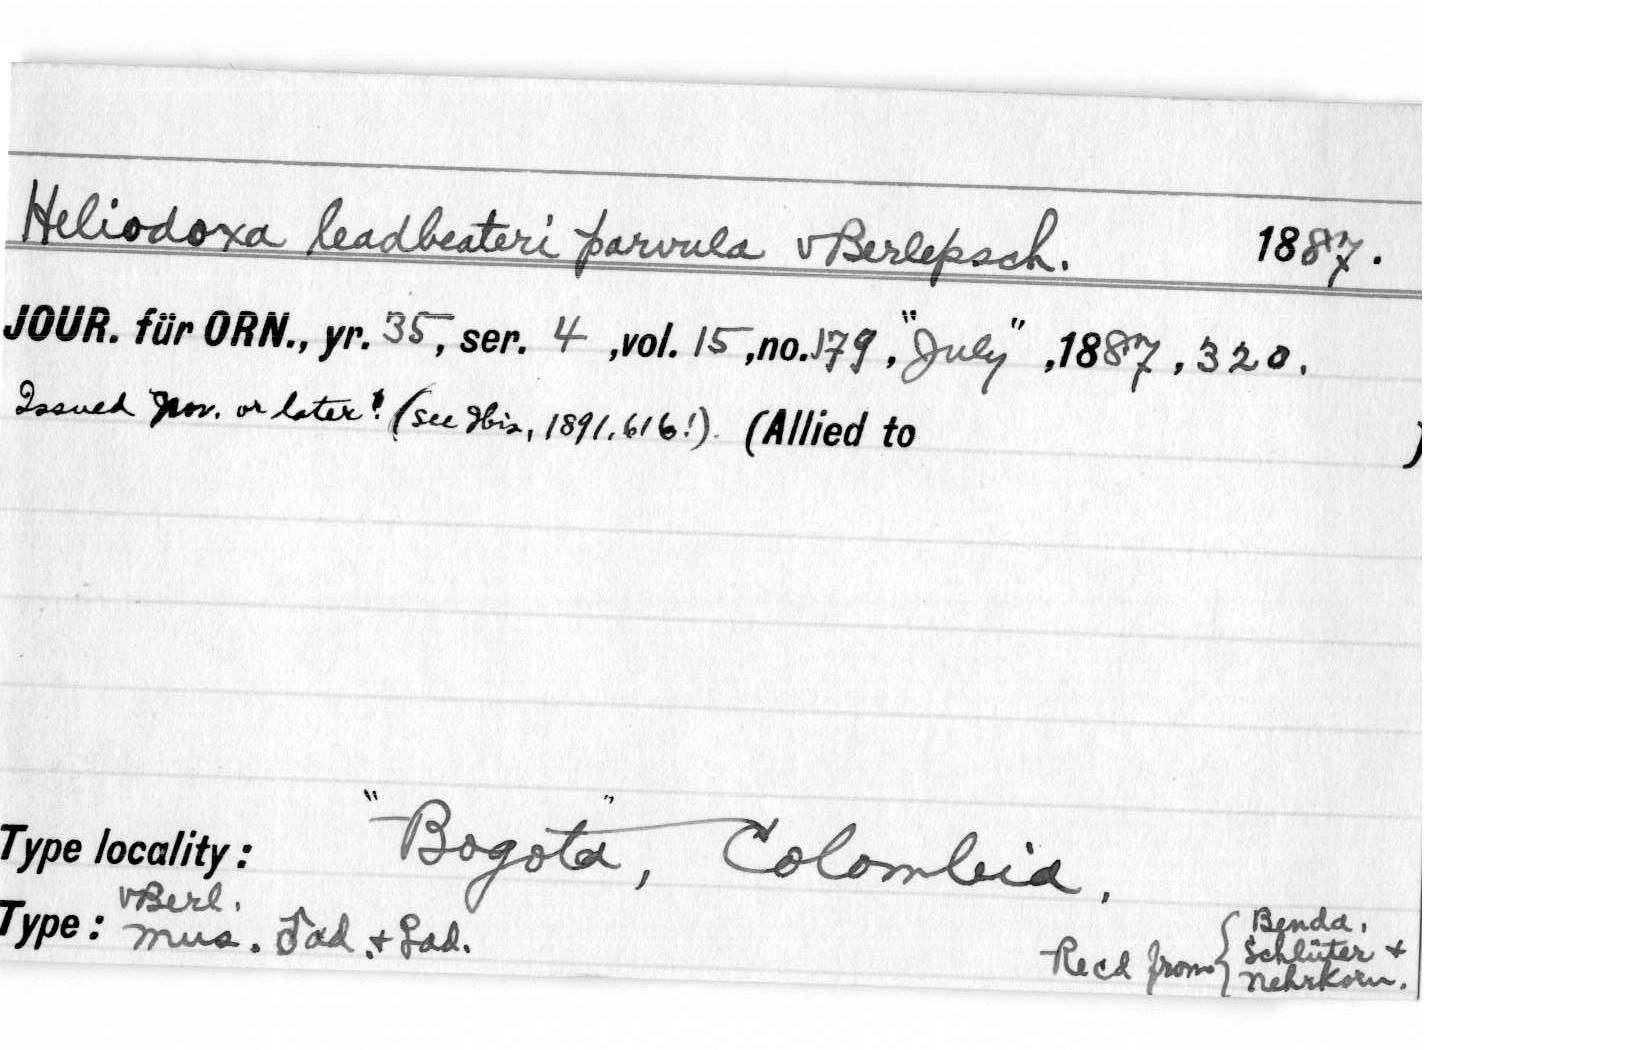 Heliodoxa leadbeateri parvula vBerlepsch. 1887.
JOUR. für ORN., yr. 35, ser. 4, vol. 15, no. 179, "July", 1887, 320.
Issued Nov. or later! (see Ibis, 1891, 616!). (Allied to )
Type locality: "Bogota", Colombia,
Type: vBerl. mus. ad. + ad.
Recd from { Benda, Schlüter + Nehrkorn.